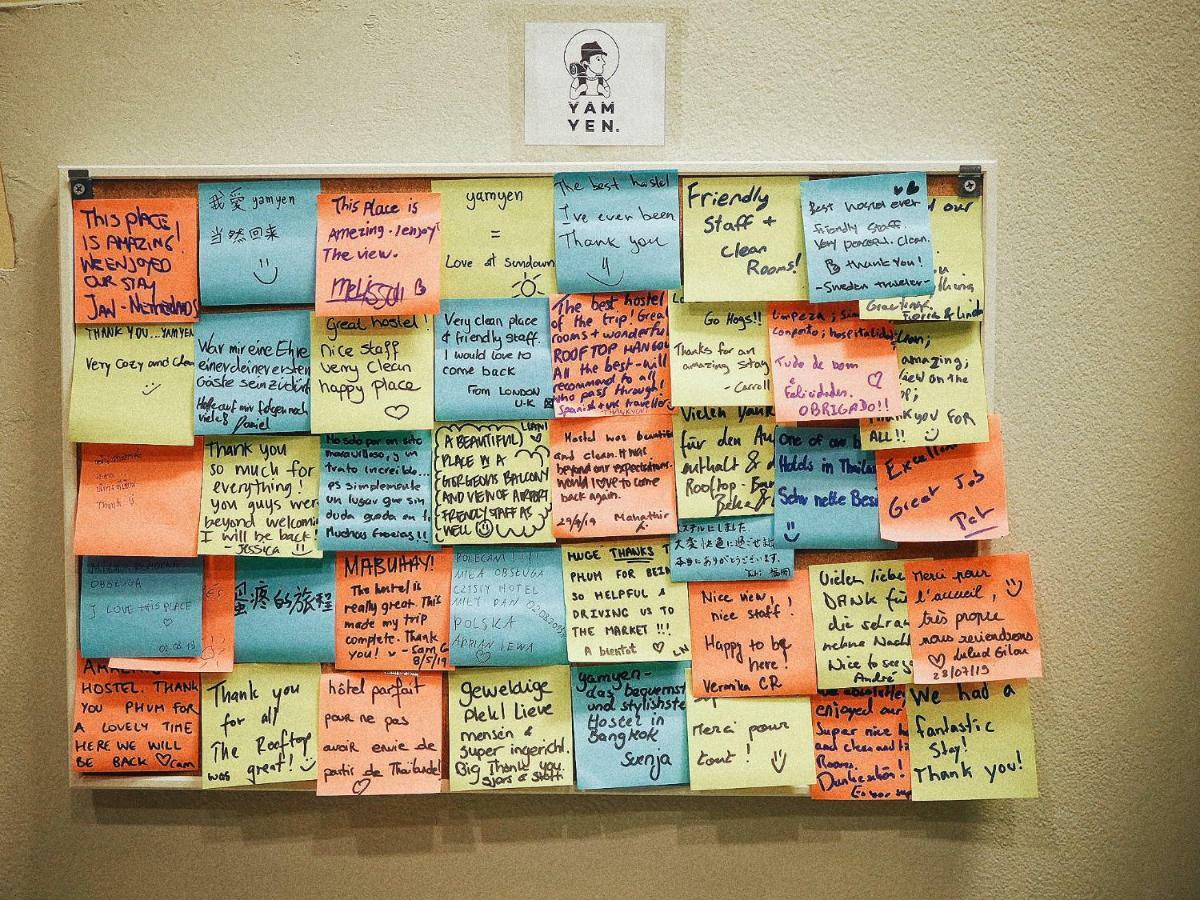 YAM
YEN.
THIS PLACE
IS AMAZING!
WE ENJOYED
OUR STAY
JAN - NETHERLANDS
我爱 yamyen
当然回来
This Place is
Amezing. I enjoy
The view.
Melissa
yamyen
=
Love at Sundown
The best hostel
I've ever been
Thank you
Friendly
Staff +
Clean
Rooms!
Best hostel ever
friendly Staff.
Very peaceful. Clean.
thank you!
- Sweden traveler -
THANK YOU...YAMYEN
Very Cozy and Clean
War mir eine Ehre
einer deiner ersten
Gäste sein zu dürf
viele Daniel
Great hostel!
nice staff
very clean
happy place
Very clean place
& friendly staff.
I would love to
come back
From LONDON
U.K
The best hostel
of the trip! Great
rooms + wonderful
ROOFTOP HANGOU
All the best - will
recommend to all
who pass through!
Spanish + uk travellers
Go Hogs!!
Thanks for an
amazing stay
- Carroll
Limpeza; Sim
conforto; hospitalid
Tudo de bom
e
Felicidades.
OBRIGADO!!
amazing;
view on the
Thank you FOR
ALL!! 
Thank you
so much for
everything!
you guys wer
beyond welcomi
I will be back!
- Jessica !!
Ha sido por un sitio
maravilloso, y un
trato increible...
es simplemente
un lugar que sin
duda queda en l
Muchas Gracias!!
LIAM
A BEAUTIFUL
PLACE IN A
GORGEOUS BALCONY
AND VIEW OF AIRPORT
FRIENDLY STAFF AS
WELL
Hostel was beautif
and clean. It was
beyond our expectations.
Would love to come
back again.
29/7/19 Mahathir
Vielen Dank
für den Au
enthalt & d
Rooftop - Bar
One of our b
Hotels in Thaila
Sehr nette Besi
Excellen
Great Job
Pat
OBSŁUGA
I LOVE THIS PLACE
02.08.19
蛋疼的旅程
MABUHAY!
The hostel is
really great. This
made my trip
complete. Thank
you! - Sam G
8/5/19
POLECAM!!!!
MIŁA OBSŁUGA
CZISTY HOTEL
MIŁY PAN
POLSKA
ADRIAN EWA
HUGE THANKS T
PHUM FOR BEIN
SO HELPFUL &
DRIVING US TO
THE MARKET !!!
A bientot
ステルにしました
大変快適に過ごせ
本当にありがとうございます。
Nice view,
nice staff.
Happy to be
here!
Veronika CR
Vielen liebe
DANK fü
die sehr an
nehme Nach
Nice to see y
André
Merci pour
l'accueil,
très propre
nous reviendrons
28/07/19
HOSTEL. THANK
YOU PHUM FOR
A LOVELY TIME
HERE WE WILL
BE BACK cam
Thank you
for all
The Rooftop
was great!
hôtel parfait
pour ne pas
avoir envie de
partir de Thaïlande!
geweldige
plek! Lieve
mensen &
super ingericht.
Big Thank you.
Sjors & Steffi
yamyen-
das bequemst
und stylishste
Hostel in
Bangkok
Svenja
Merci pour
tout!
enjoyed our
Super nice h
and clean and
Rooms.
Dankeschön!
We had a
fantastic
Stay!
Thank you!